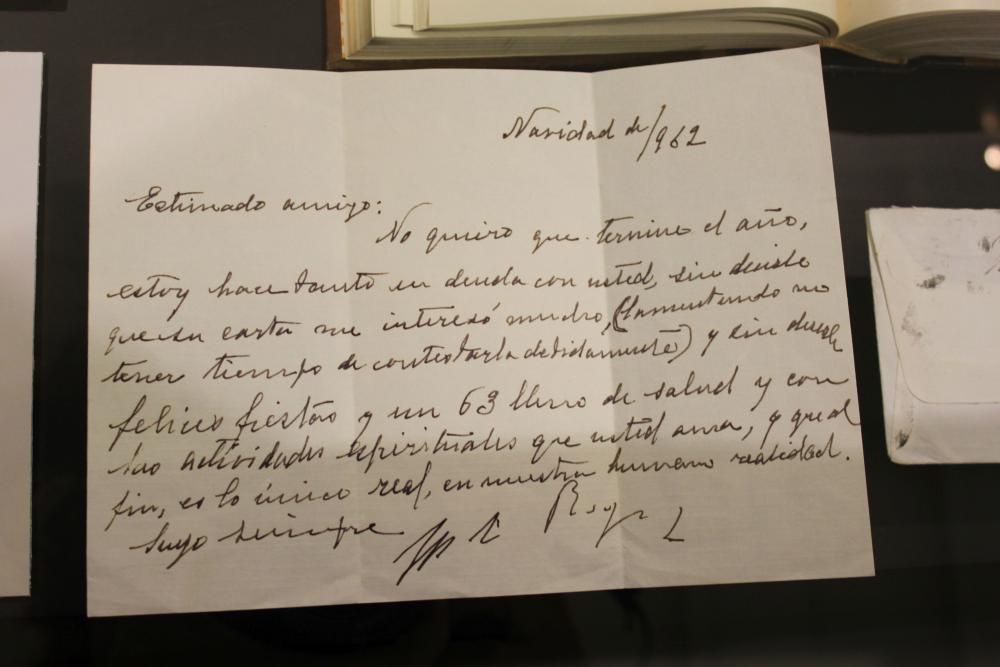 Navidad de 1962
Estimado amigo:
No quiero que termine el año,
estoy hace tanto en deuda con usted, sin decirle
que su carta me interesó mucho, (lamentando no
tener tiempo de contestarla debidamente) y sin
felices fiestas y un 63 lleno de salud y con
las actividades espirituales que usted ama, y que al
fin, es lo único real, en nuestra humana realidad.
Suyo siempre